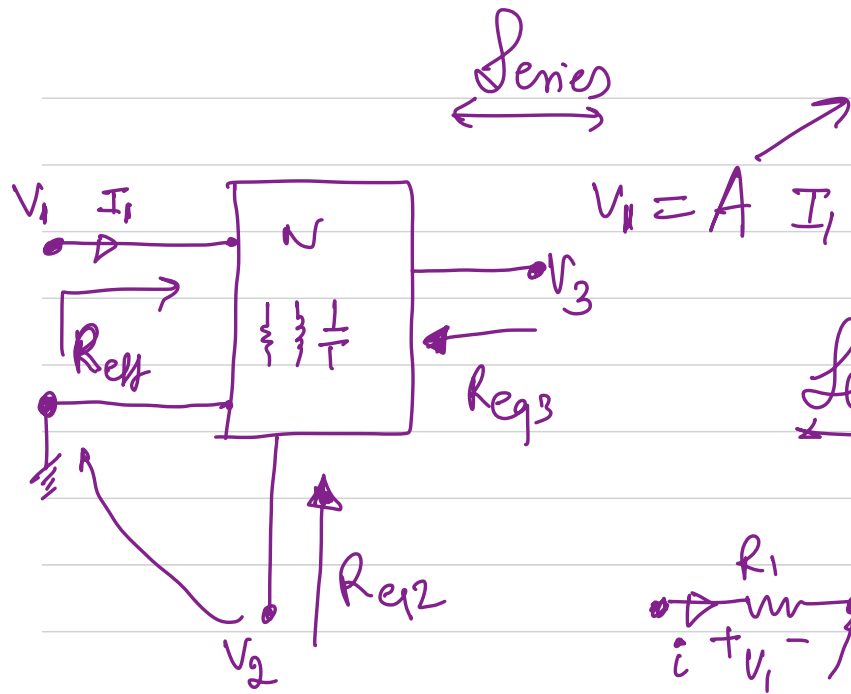 Series
V₁ I₁
N
V₁ = A I₁
V₃
Reff
Req3
Req2
V₂
R₁
i + V₁ -